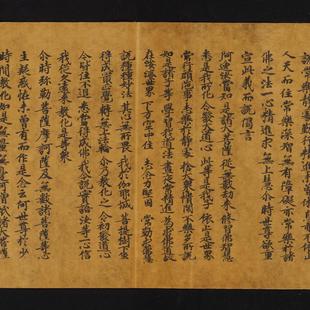 說常樂靜處勤行精進未曾休息亦不依止
人天而住常樂深智無有障礙亦常樂於諸
佛之法一心精進求無上慧尒時世尊欲重
宣此義而說偈言
阿逸汝當知 是諸大菩薩 從無數劫來 修習佛智慧
悉是我所化 令發大道心 此等是我子 依止是世界
常行頭陀事 志樂於靜處 捨大眾憒閙 不樂多所說
如是諸子等 學習我道法 晝夜常精進 為求佛道故
在娑婆世界 下方空中住 志念力堅固 常勤求智慧
說種種妙法 其心無所畏 我於伽耶城 菩提樹下坐
得成最正覺 轉無上法輪 尒乃教化之 令初發道心
今皆住不退 悉當得成佛 我今說實語 汝等一心信
我從久遠來 教化是等眾
尒時彌勒菩薩摩訶薩及無數諸菩薩等心
生疑惑怪未曾有而作是念云何世尊於少
時間教化如是無量無邊阿僧祇諸大菩薩